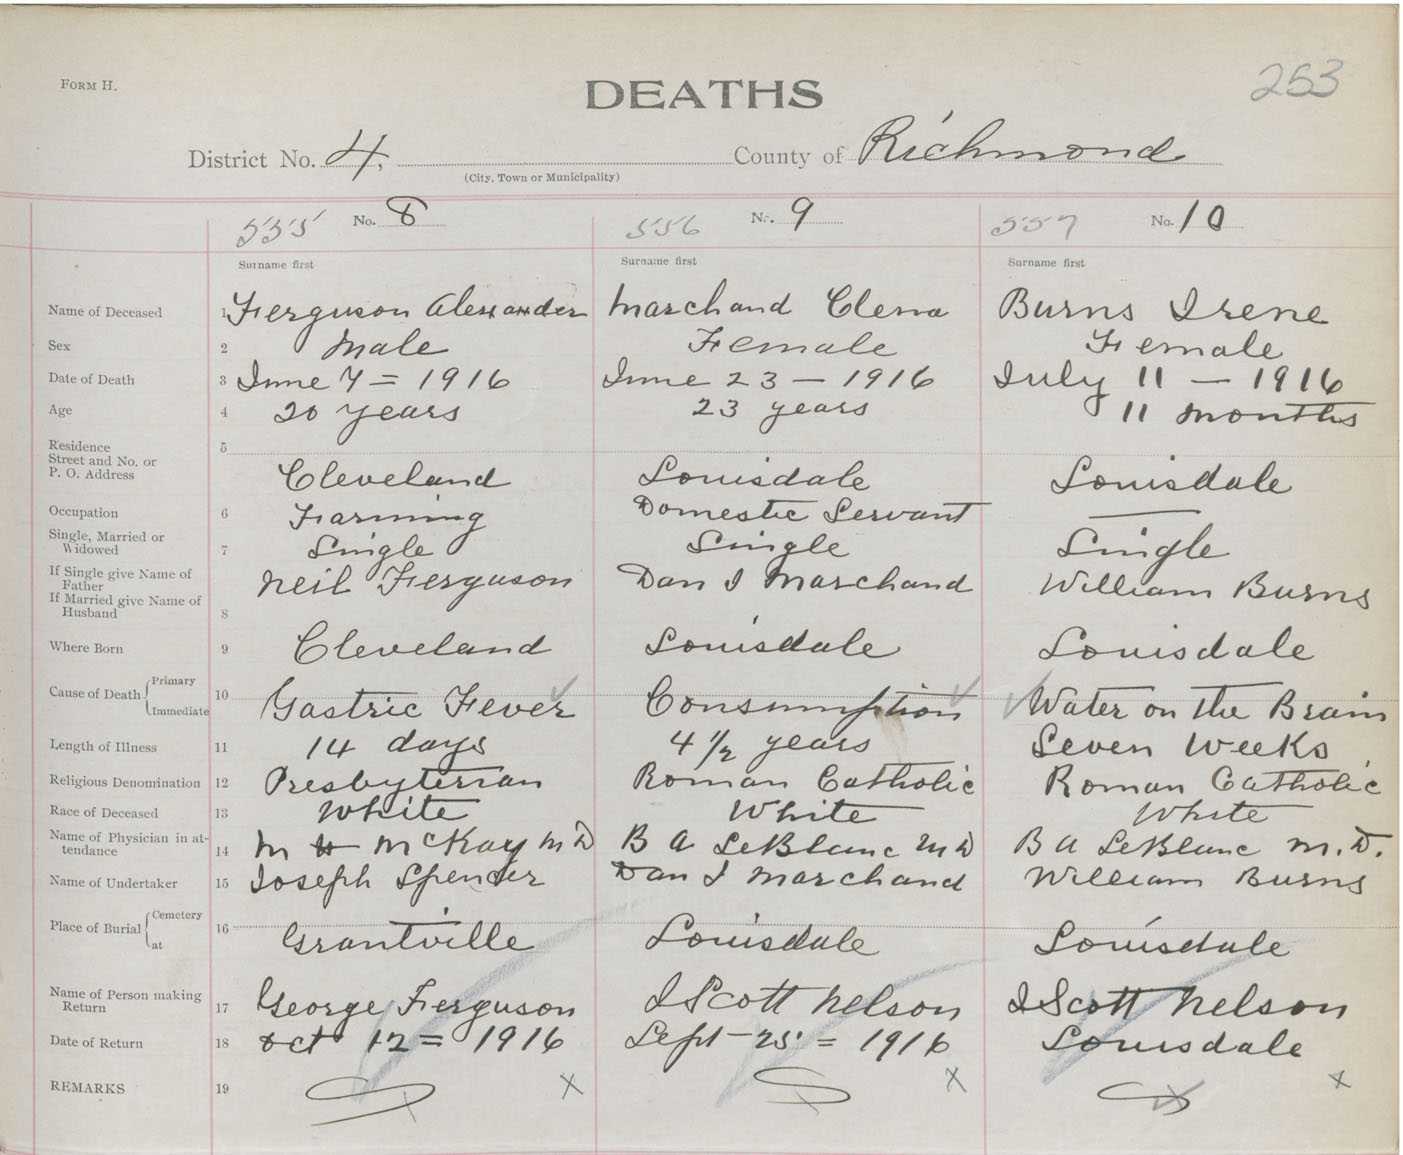 FORM H.
DEATHS
253
District No. 4, County of Richmond
(City, Town or Municipality)
535 No. 8 556 No. 9 557 No. 10
Surname first Surname first Surname first
Name of Deceased 1 Ferguson Alexander Marchand Clena Burns Irene
Sex 2 Male Female Female
Date of Death 3 June 7 = 1916 June 23 — 1916 July 11 — 1916
Age 4 20 years 23 years 11 months
Residence 5
Street and No. or
P. O. Address Cleveland Louisdale Louisdale
Occupation 6 Farming Domestic Servant —
Single, Married or
Widowed 7 Single Single Single
If Single give Name of
Father Neil Ferguson Dan J Marchand William Burns
If Married give Name of
Husband 8
Where Born 9 Cleveland Louisdale Louisdale
Cause of Death Primary
Immediate 10 Gastric Fever Consumption Water on the Brain
Length of Illness 11 14 days 4 1/2 years Seven Weeks
Religious Denomination 12 Presbyterian Roman Catholic Roman Catholic
Race of Deceased 13 White White White
Name of Physician in at-
tendance 14 M H McKay M D B A LeBlanc M D B A LeBlanc M.D.
Name of Undertaker 15 Joseph Spencer Dan J Marchand William Burns
Place of Burial Cemetery
at 16 Grantville Louisdale Louisdale
Name of Person making
Return 17 George Ferguson J Scott Nelson J Scott Nelson
Date of Return 18 Oct 12 = 1916 Sept – 25 = 1916 Louisdale
REMARKS 19 x x x